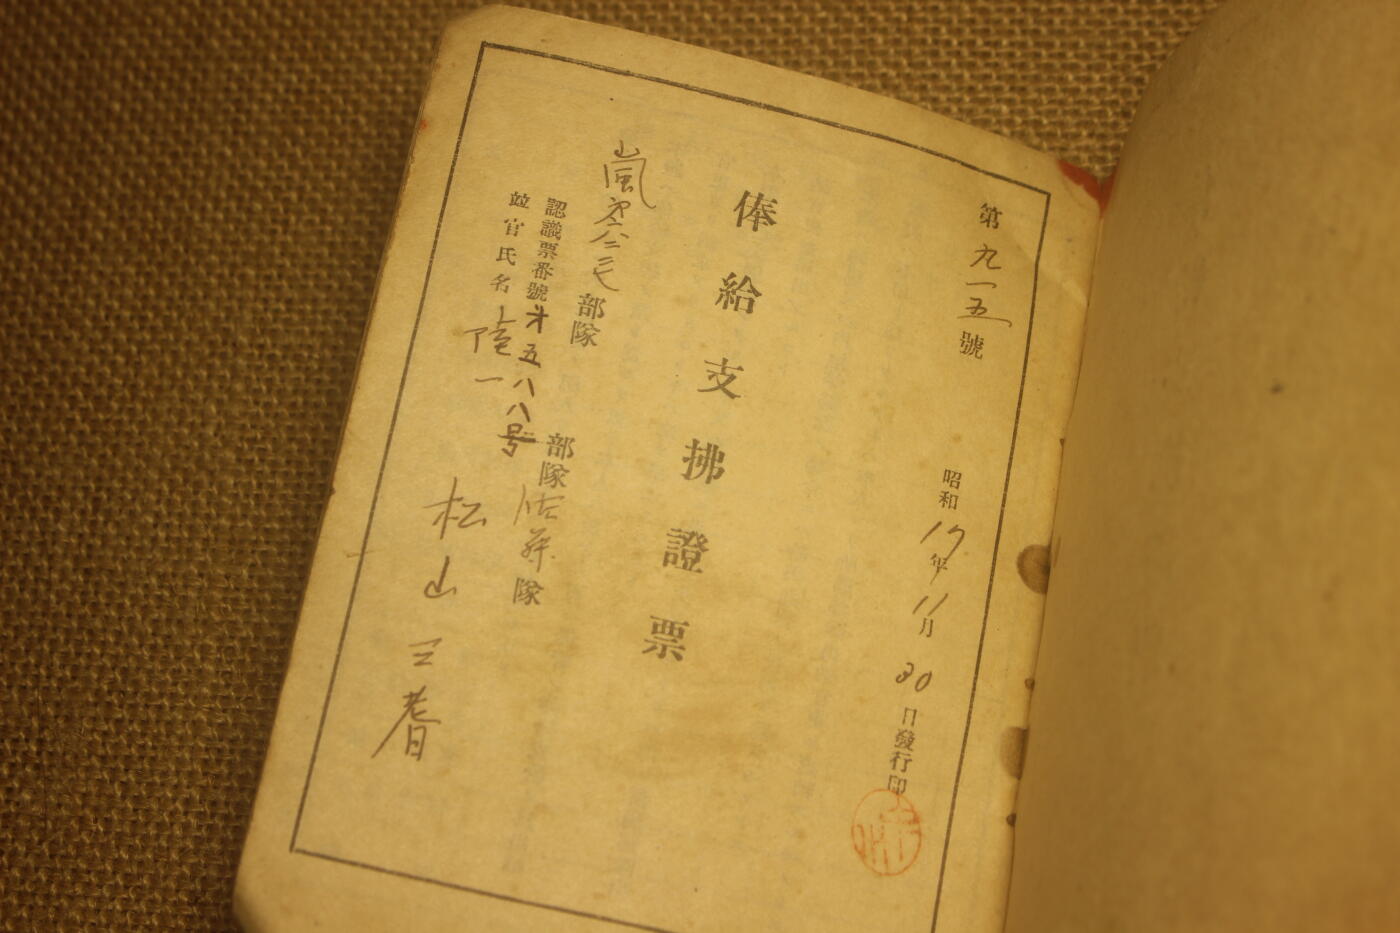 第九一五號
昭和17年11月30日發行印
俸給支拂證票
嵐 部隊
部隊佐藤隊
認識票番號才五八八号
竝官氏名 陸一 松山三